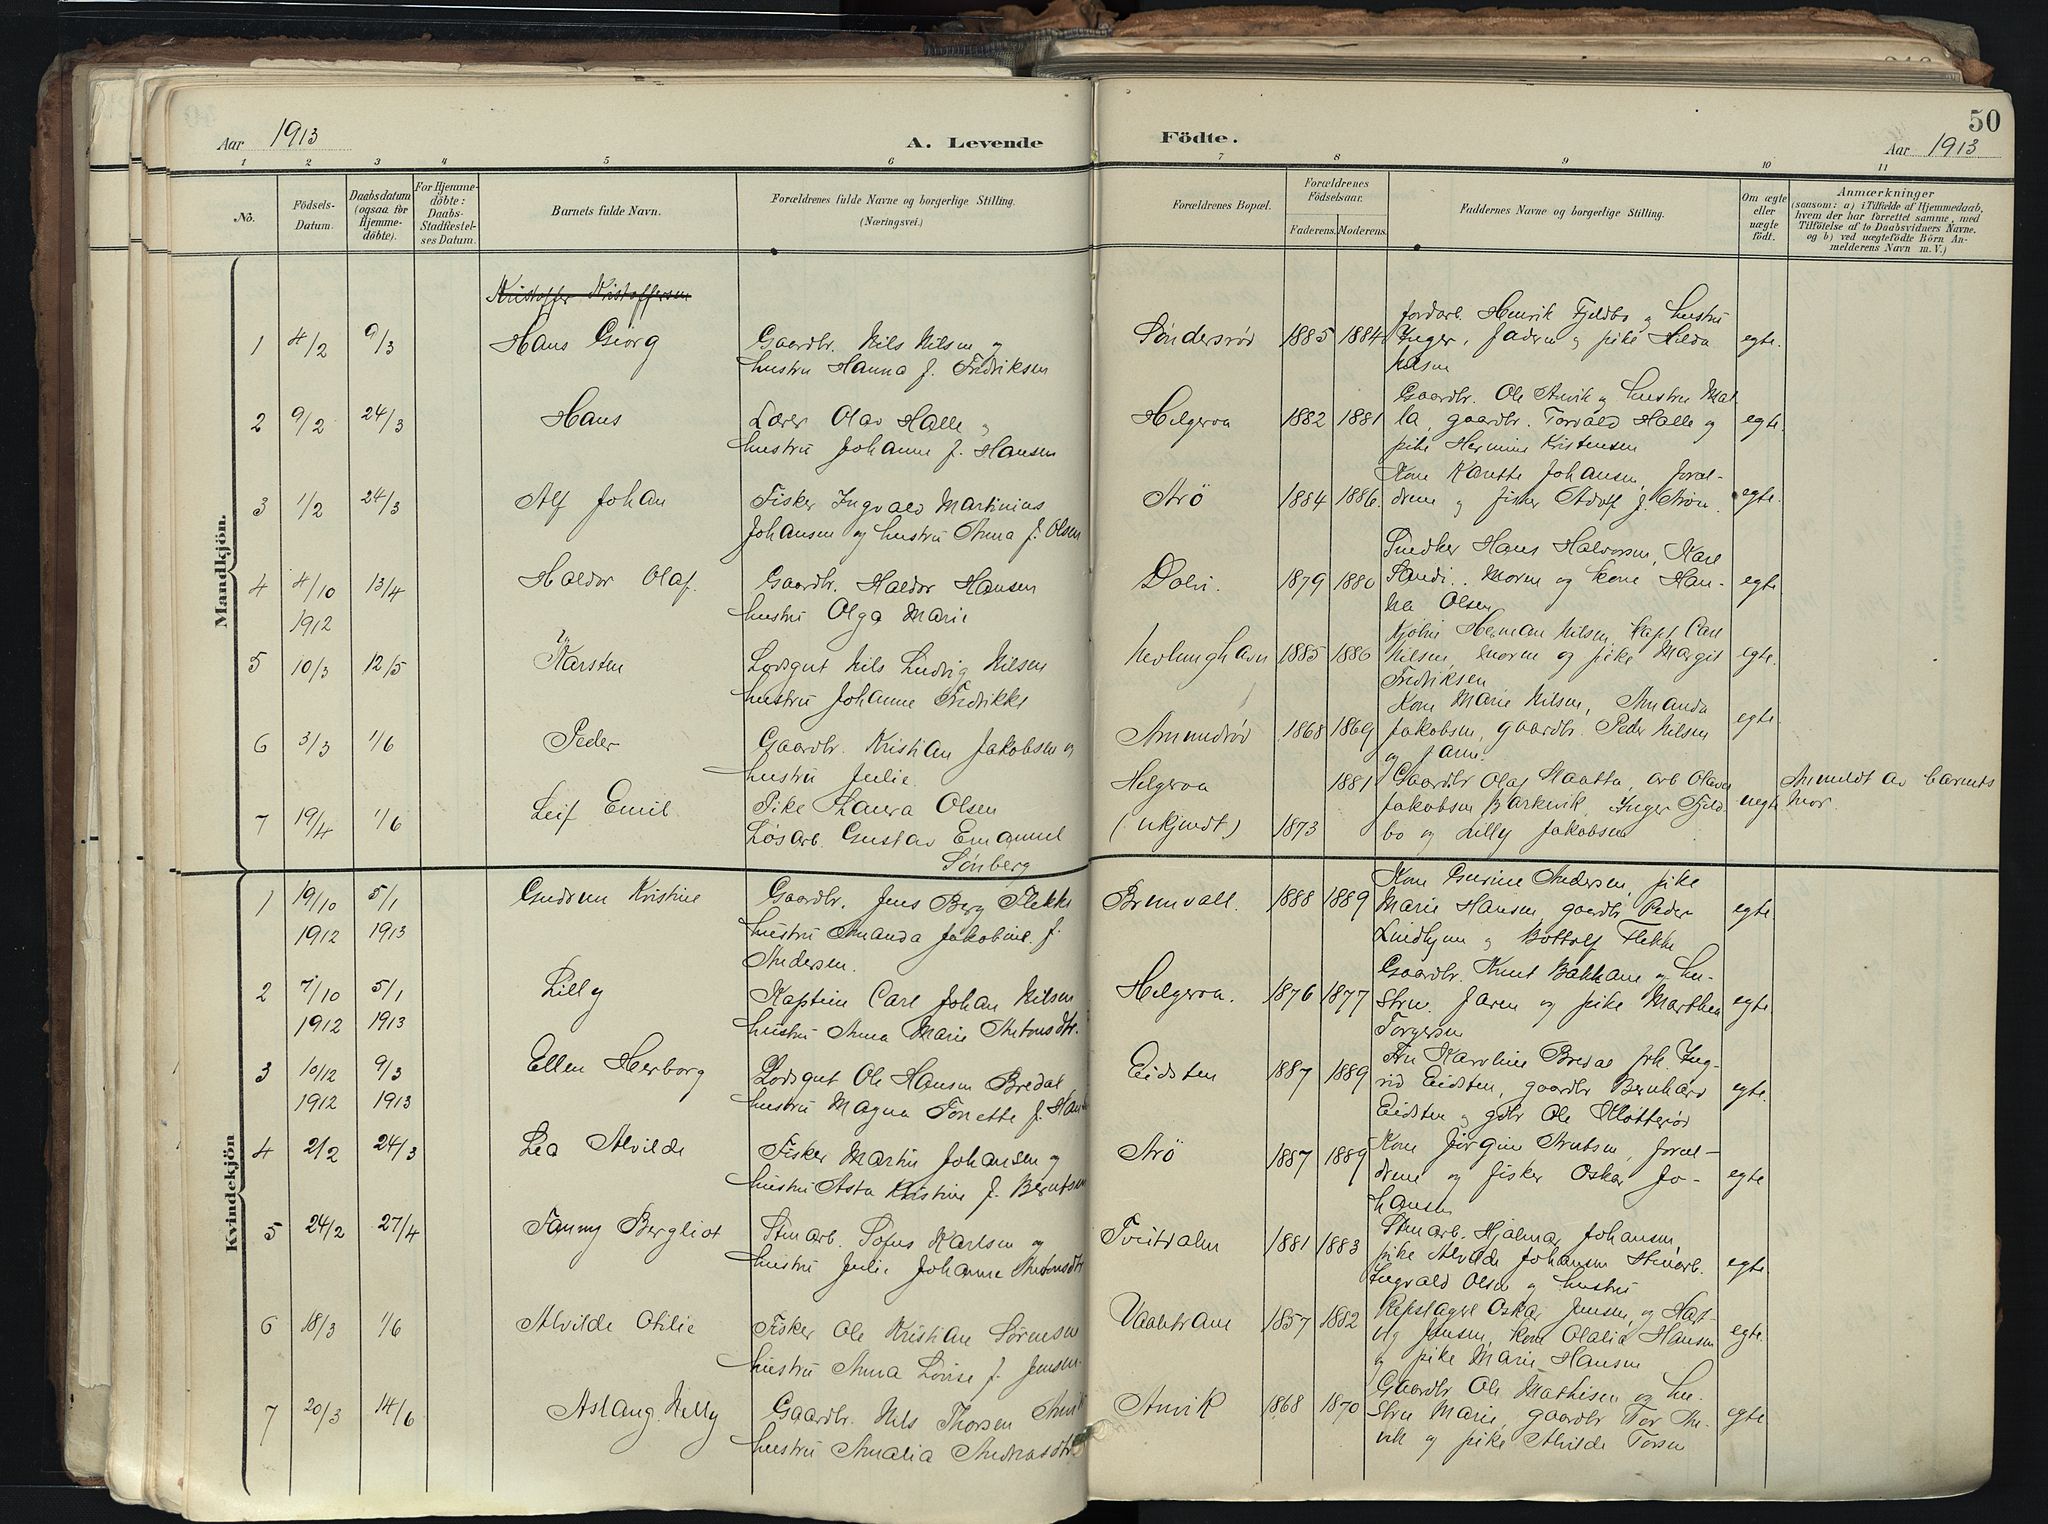 Aar 1913
A. Levende
Födte.
50
Aar 1913
1 2 3 4 5 6 7 8 9 10 11
Nô.
Födsels-
Datum.
Daabsdatum
(ogsaa for
Hjemme-
döbte).
For Hjemme-
döbte:
Daabs-
Stadfæstel-
ses Datum.
Barnets fulde Navn.
Forældrenes fulde Navne og borgerlige Stilling.
(Næringsvei.)
Forældrenes Bopæl.
Forældrenes
Födselsaar.
Faderens. Moderens.
Faddernes Navne og borgerlige Stilling.
Om ægte
eller
uægte
födt.
Anmærkninger
(saasom: a) i Tilfælde af Hjemmedaab,
hvem der har forrettet samme, med
Tilföielse af to Daabsvidners Navne,
og b) ved uægtefödte Börn An-
melderens Navn m. V.)
Mandkjön.
Kristoffer Kristoffersen
1 4/2 9/3 Hans Georg
Gaardbr. Nils Nilsen og
hustru Hanna f. Fredriksen
Söndersrød 1885 1884
Jordarb. Henrik Fjeldbo og hustru
Inger, faderen og pike Hilda
Nilsen
egte.
2 9/2 24/3 Hans
Lærer Olav Halle og
hustru Johanne f. Hansen
Helgeroa 1882 1881
Gaardbr. Ole Anvik og hustru Mat
la, gaardbr. Torvald Halle og
pike Hermine Kristensen
egte.
3 1/2 24/3 Alf Johan
Fisker Ingvald Martinius
Johansen og hustru Anna f. Olsen
Arö 1884 1886.
Kone Johansen, foræl-
drene og fisker Adolf J. Aröen.
egte.
4 4/10 1912 13/4 Haldor Olaf.
Gaardbr. Haldor Hansen
hustru Olga Marie
Dolvi. 1879 1880
Snedker Hans Halvorsen, Karl
Moren og kone Han-
na Olsen
egte
5 10/3 12/5 Karsten
Lodsgut Nils Ludvig Nilsen
hustru Johanne Fredrikke
Nevlunghavn 1885 1886
Herman Nilsen, kapt. Carl
Nilsen, moren og pike Margit
Fredriksen
egte.
6 3/3 1/6 Peder
Gaardbr. Kristian Jakobsen og
hustru Julie.
Amundrød 1868 1869
Kone Marie Nilsen, Amanda
Jakobsen, gaardbr. Peder Nilsen
og faren.
egte.
7 19/4 1/6 Leif Emil
Pike Laura Olsen
Løsarb. Gustav Emanuel
Sönberg
Helgeroa 1881
(ukjendt.) 1873
Gaardbr Olaf Haatta, arb Olava
Jakobsen Barkevik, Inger Fjeld
bo og Lilly Jakobsen
uegte
Anmeldt av barnets
mor.
Kvindekjön
1 19/10 1912 5/1 1913 Gudrun Kristine
Gaardbr. Jens Berg Flekke
hustru Amanda Jakobine f.
Andersen.
Brunvall. 1888 1889
Kone Gurine Andersen, pike
Marie Hansen, gaardbr Peder
og Bottolf Flekke
egte
2 7/10 1912 5/1 1913 Lilly
Kaptein Carl Johan Nilsen
hustru Anna Marie Antonsdtr.
Helgeroa. 1876 1877
Gaardbr. Knut Bakkane og hu-
stru. Faren og pike Marthea
Torgersen
egte.
3 10/12 1912 9/3 1913 Ellen Herborg
Lodsgut Ole Hansen Bredal
hustru Magna Tonette f. Hansen
Eidsten 1887 1889
Fru Karoline Bredal, frk. Ing-
rid Eidsten, gaardbr Bernhard
Eidsten og gdbr Ole Klotterød
egte.
4 2/2 24/3 Lea Alvilde
Fisker Martin Johansen og
hustru Asta Kristine f. Berntsen
Arö 1887 1889
Kone Jörgine Arntsen, foræl-
drene og fisker Oskar Jo-
hansen
egte
5 24/2 27/4 Fanny Bergliot
Stenarb. Sofus Karlsen og
hustru Julie Johanne Antonsdtr
Tveitdalen 1881 1883
Stenarb. Hjalmar Johansen,
pike Alvilde Johansen Stenarb.
Ingvald Olsen og hustru
egte.
6 18/3 1/6 Alvilde Otilie
Fisker Ole Kristian Sörensen
hustru Anna Lovise f. Jensen.
1857 1882
Repslager Oskar Jensen, og Hat-
Jensen, kone Olalia Hansen
og pike Marie Hansen
egte.
7 20/3 14/6 Aslaug Nelly
Gaardbr. Nils Thorsen Anvik
hustru Amalia Andreasdtr
Anvik 1868 1870
Gaardbr Ole Mathisen og hu-
stru Marie, gaardbr Tor An-
vik og pike Alvilde Torsen
egte.